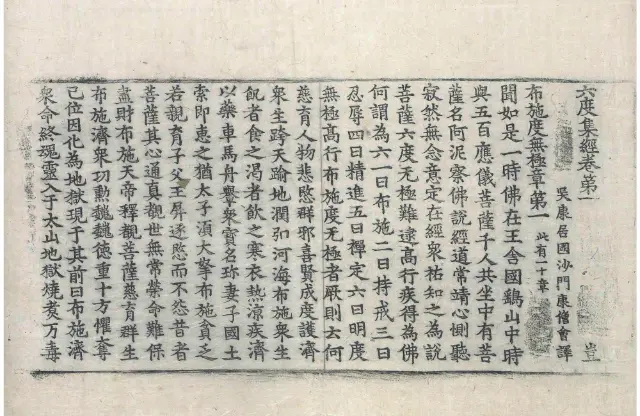 六度集經卷第一　豈
吳康居國沙門康僧會譯
布施度無極章第一　此有一十章
聞如是一時佛在王舍國鷂山中時
與五百應儀菩薩千人共坐中有菩
薩名阿泥察佛說經道常靖心惻聽
寂然無念意定在經衆祐知之為說
菩薩六度无極難逮高行疾得為佛
何謂為六一曰布施二曰持戒三曰
忍辱四曰精進五曰禪定六曰明度
無極高行布施度无極者厥則云何
慈育人物悲愍群邪喜賢成度護濟
衆生跨天踰地潤弘河海布施衆生
飢者食之渴者飲之寒衣熱涼疾濟
以藥車馬舟轝衆寶名珎妻子國土
索即惠之猶太子湏大拏布施貧乏
若親育子父王屏逐愍而不怨昔者
菩薩其心通真覩世無常榮命難保
盡財布施天帝釋覩菩薩慈育群生
布施濟衆功勳巍巍德重十方懼奪
己位因化為地獄現于其前曰布施濟
衆命終魂靈入于太山地獄燒煑万毒